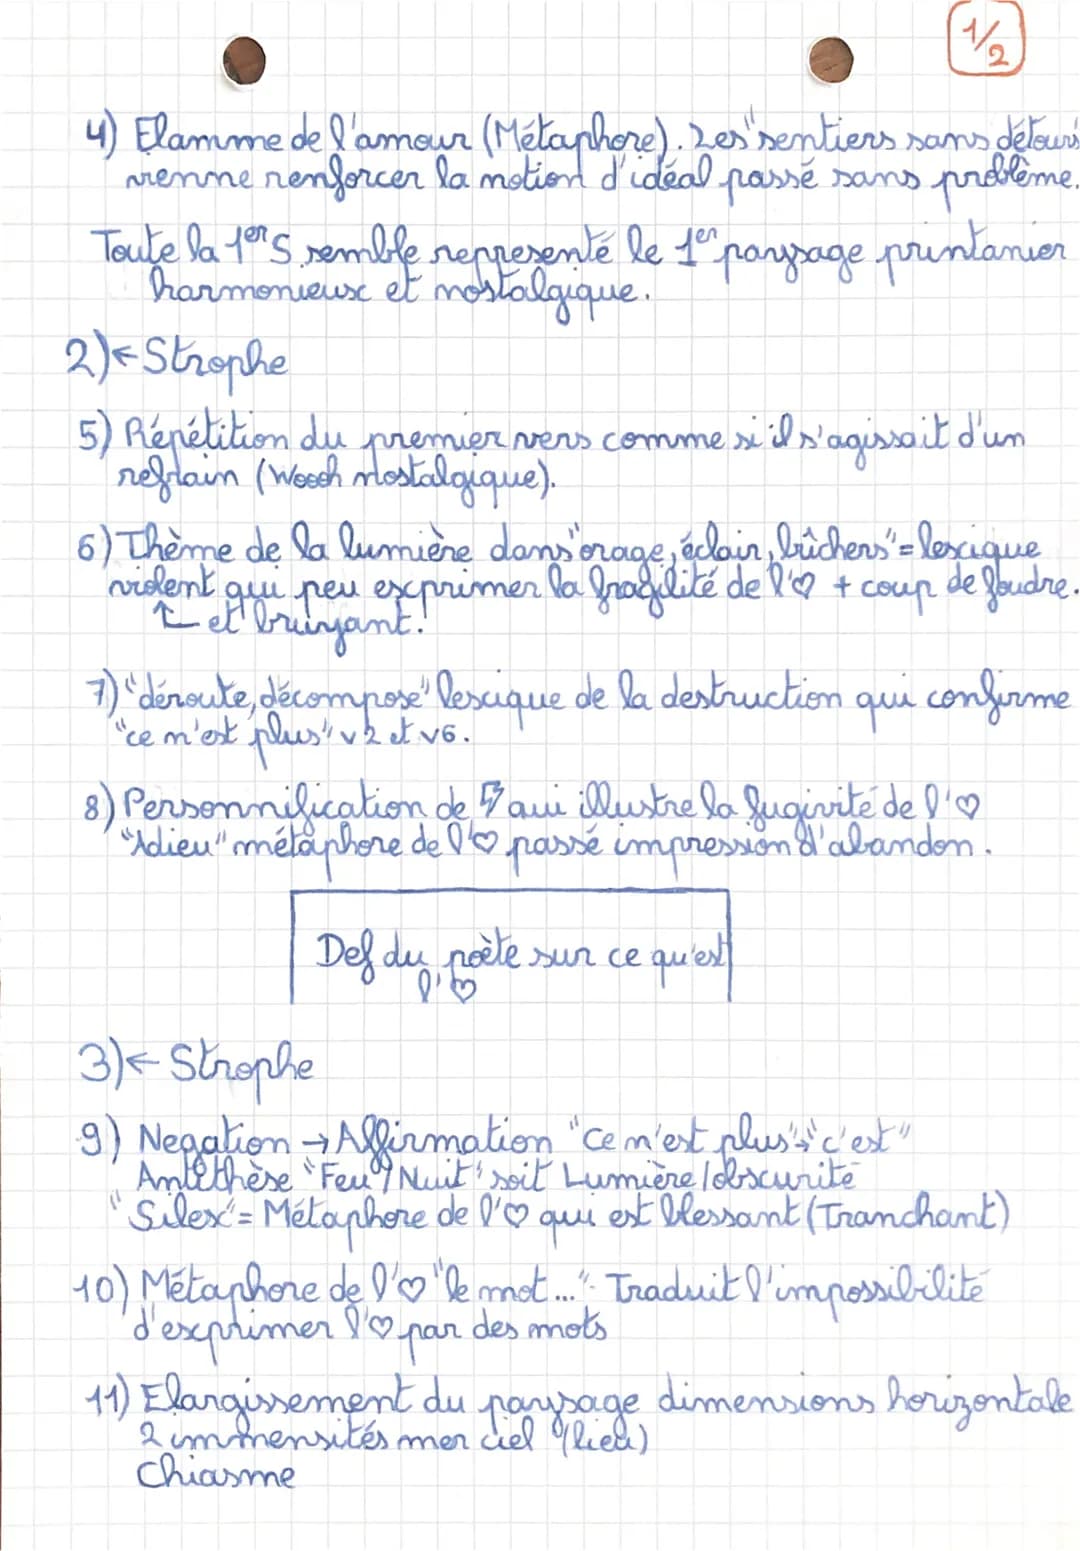 1/2
4) Flamme de l'amour (Métaphore). Les "sentiers sans détours
vienne renforcer la notion d'idéal passé sans problème.
Toute la 1er S semble representé le 1er paysage printanier
harmonieux et nostalgique.
2) ← Strophe
5) Répétition du premier vers comme si il s'agissait d'un
refrain (Woooh nostalgique).
6) Thème de la lumière dans "orage, éclair, bûchers" = lexique
violent qui peu exprimer la fragilité de l'♡ + coup de foudre.
↑ et bruyant.
7) "déroute, décompose" lexique de la destruction qui confirme
"ce n'est plus" v2 et v6.
8) Personnification de ⚡ qui illustre la fugivité de l'♡
"Adieu" métaphore de l'♡ passé impression d'abandon.
Def du poète sur ce qu'est
l'♡
3) ← Strophe
9) Negation → Affirmation "ce n'est plus" → "c'est"
Antéthèse "Feu"/"Nuit" soit Lumière/obscurité
"Silex" = Métaphore de l'♡ qui est blessant (Tranchant)
10) Métaphore de l'♡ "le mot..." Traduit l'impossibilité
d'exprimer l'♡ par des mots
11) Elargissement du paysage dimensions horizontale
2 immensités mer ciel (lieu)
Chiasme